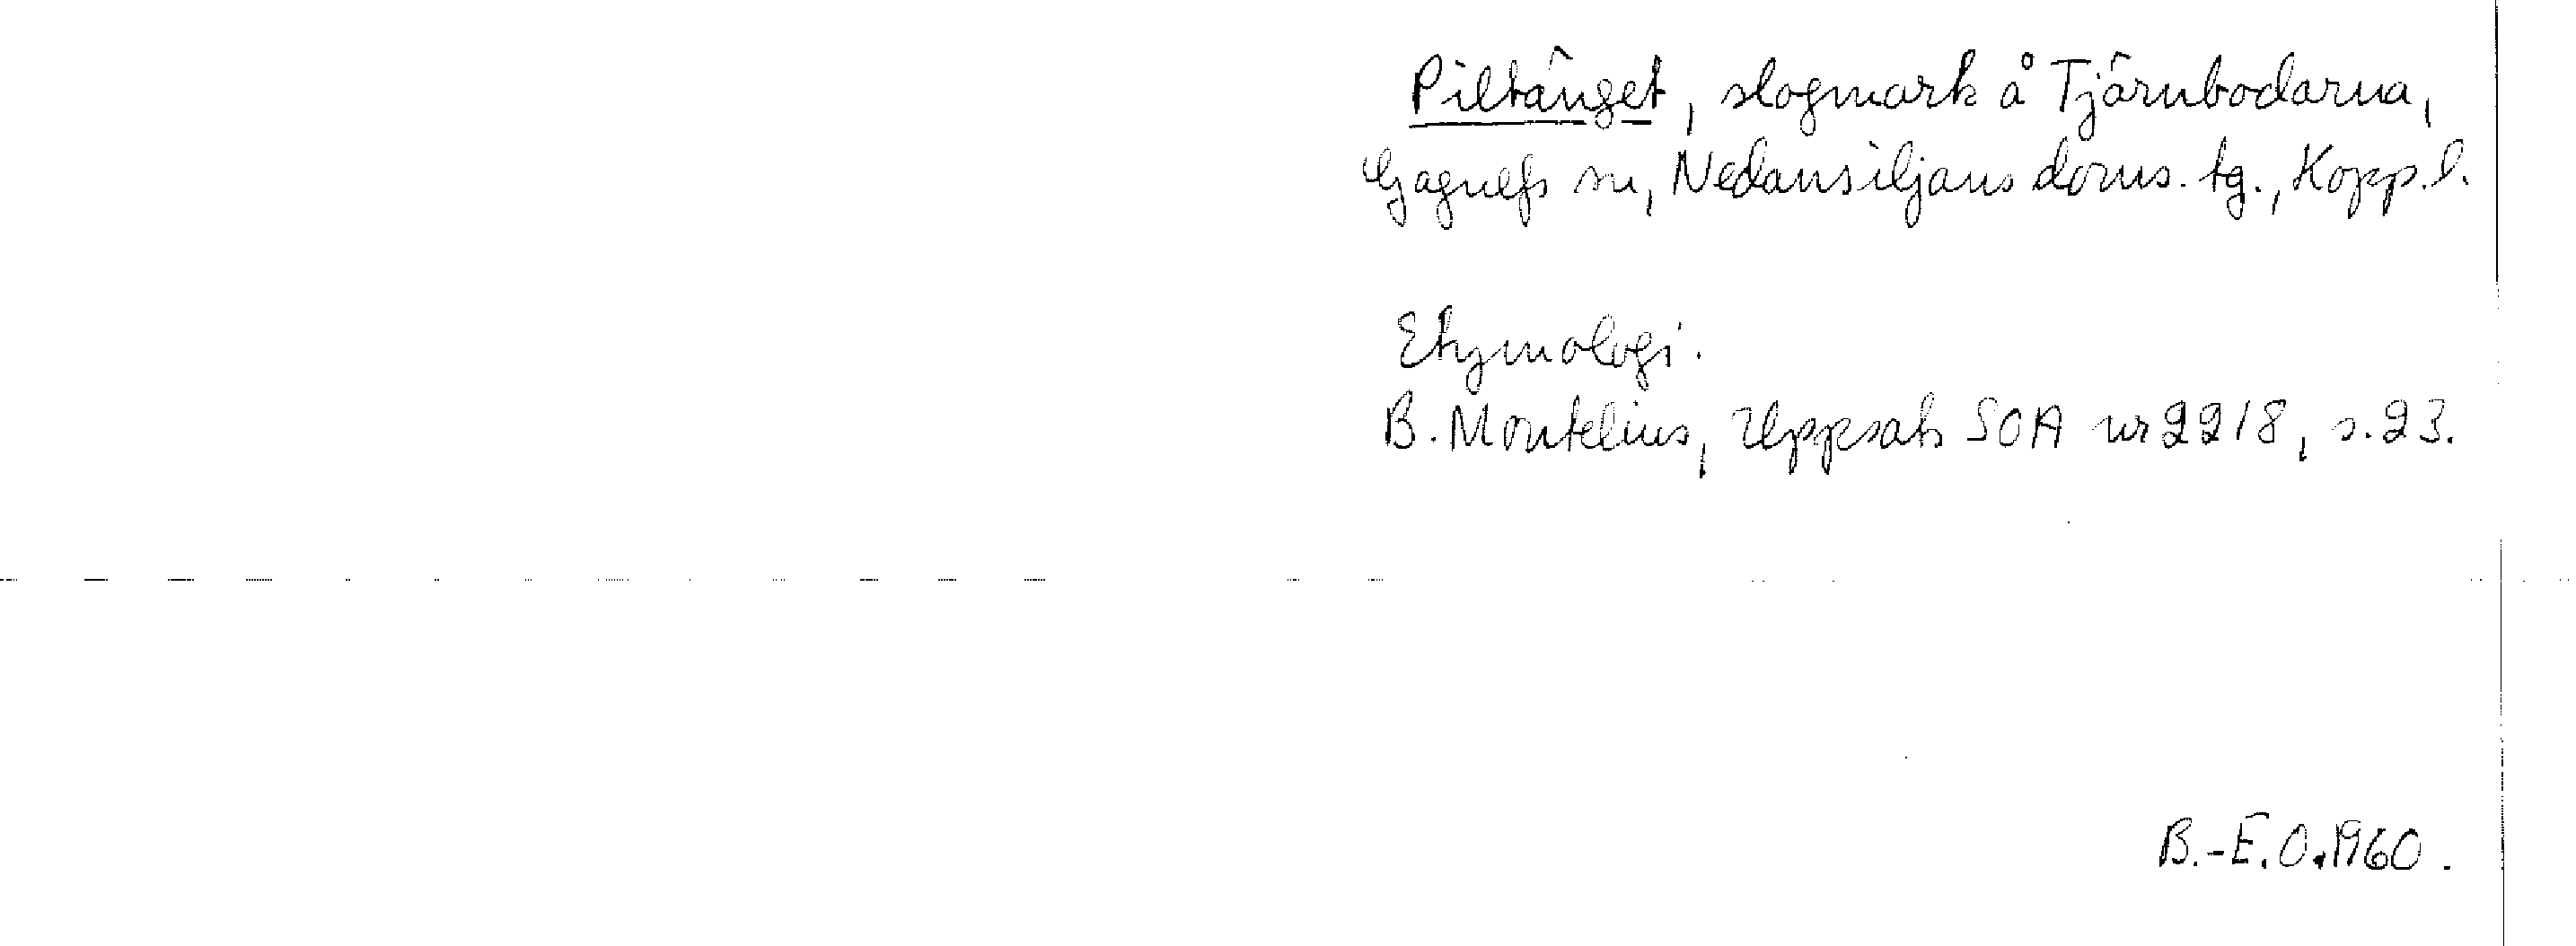 Piltänget, slogmark å Tjärnbodarna,
Gagnefs sn, Nedansiljans doms. tg., Kopp. l.
Etymologi.
B. Montelius, Uppsats SOA nr 2218, s. 23.
B.-E. O. 1960.